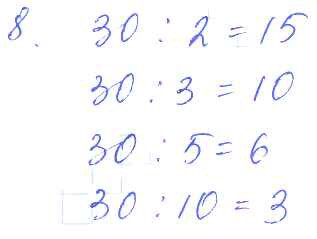 8. 30 : 2 = 15
30 : 3 = 10
30 : 5 = 6
30 : 10 = 3